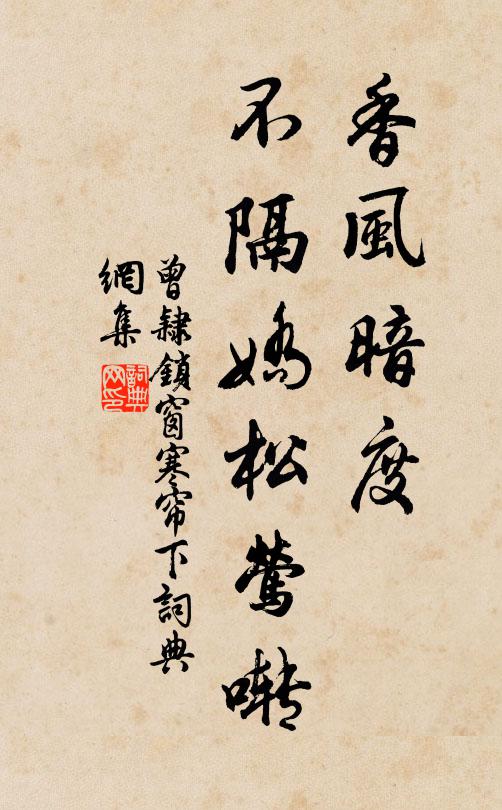 香風暗度
不隔嬌松鶯囀
曾隸鎖窗寒帘下詞典
網集
詞典
网印